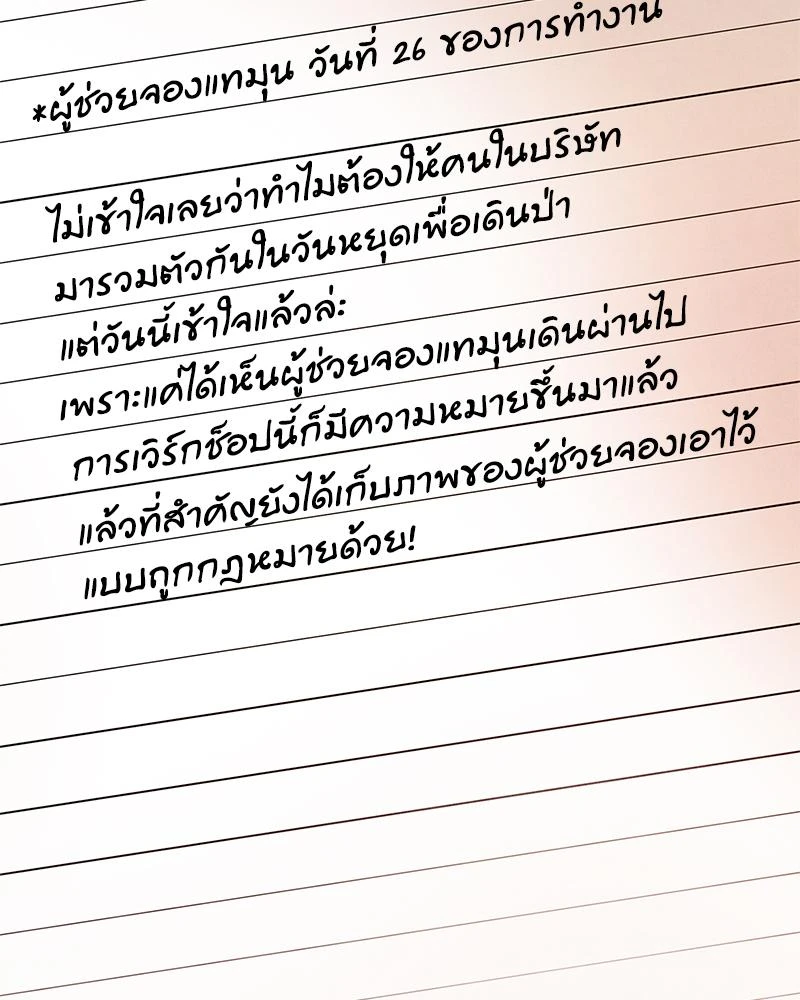 *ผู้ช่วยจองแทมุน วันที่ 26 ของการทำงาน
ไม่เข้าใจเลยว่าทำไมต้องให้คนในบริษัท
มารวมตัวกันในวันหยุดเพื่อเดินป่า
แต่วันนี้เข้าใจแล้วล่ะ
เพราะแค่ได้เห็นผู้ช่วยจองแทมุนเดินผ่านไป
การเวิร์กช็อปนี้ก็มีความหมายขึ้นมาแล้ว
แล้วที่สำคัญยังได้เก็บภาพของผู้ช่วยจองเอาไว้
แบบถูกกฎหมายด้วย!